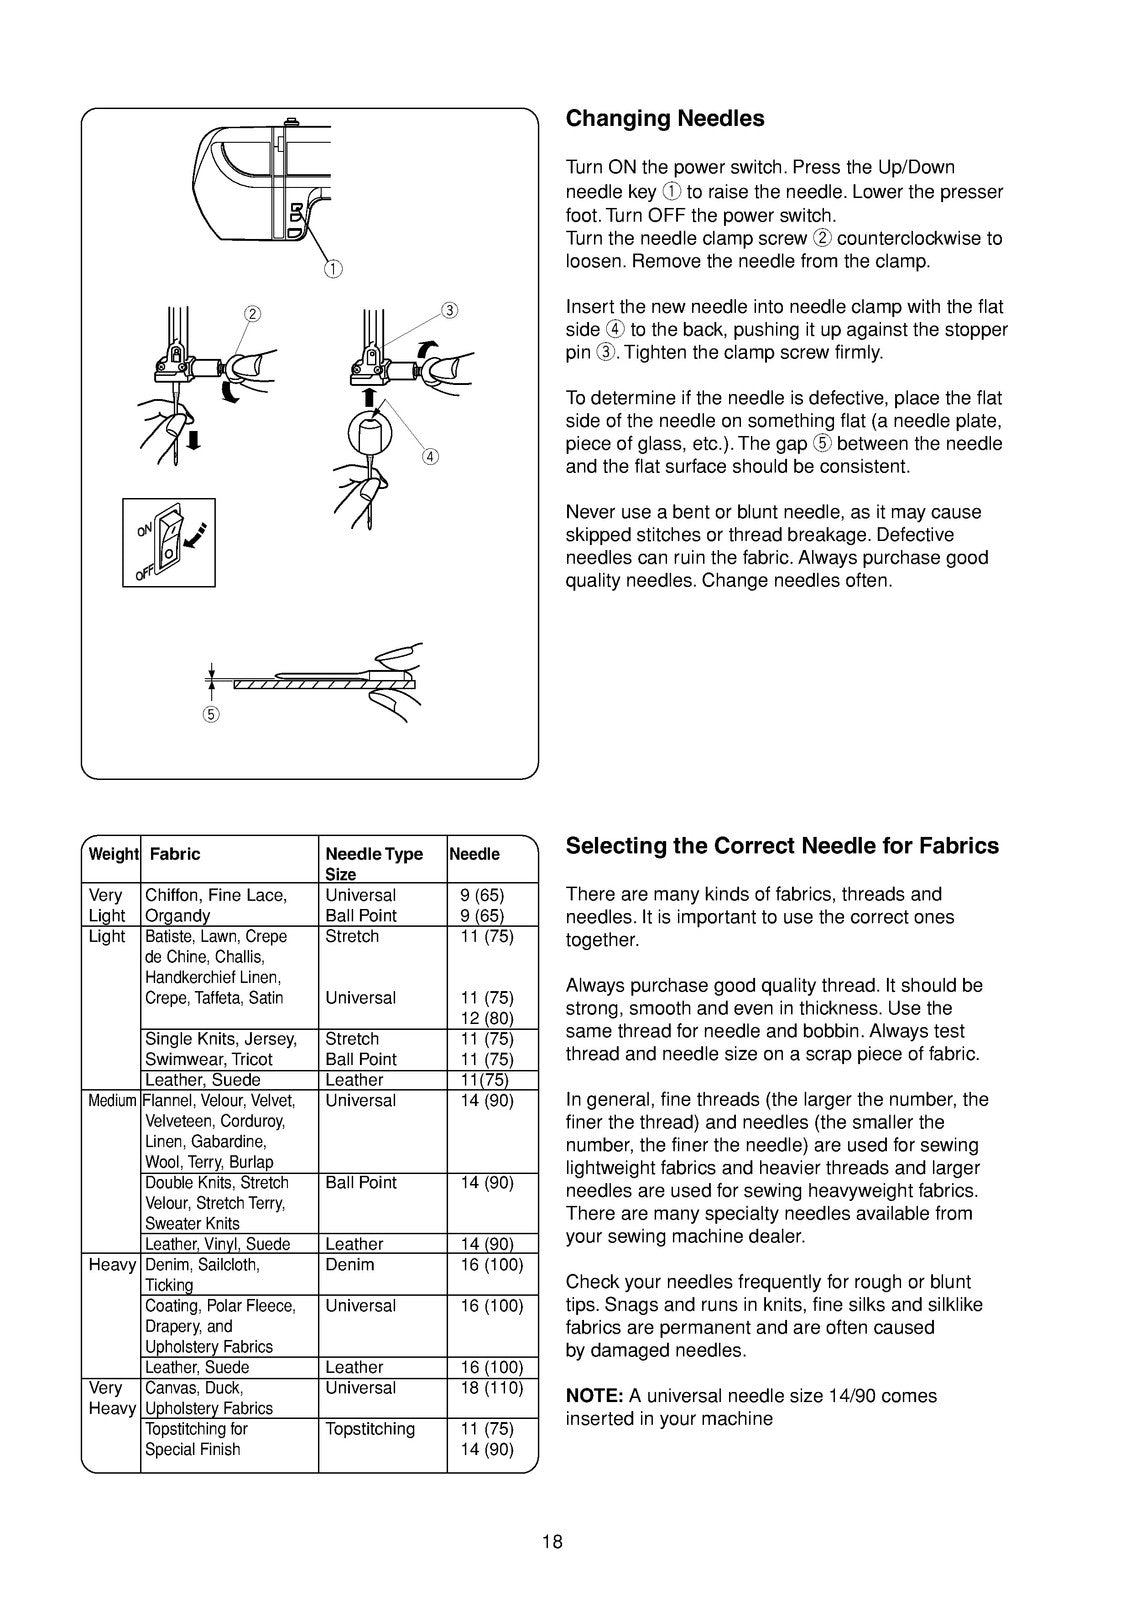 ①
②
③
④
ON
OFF
⑤
Changing Needles
Turn ON the power switch. Press the Up/Down
needle key ① to raise the needle. Lower the presser
foot. Turn OFF the power switch.
Turn the needle clamp screw ② counterclockwise to
loosen. Remove the needle from the clamp.
Insert the new needle into needle clamp with the flat
side ④ to the back, pushing it up against the stopper
pin ③. Tighten the clamp screw firmly.
To determine if the needle is defective, place the flat
side of the needle on something flat (a needle plate,
piece of glass, etc.). The gap ⑤ between the needle
and the flat surface should be consistent.
Never use a bent or blunt needle, as it may cause
skipped stitches or thread breakage. Defective
needles can ruin the fabric. Always purchase good
quality needles. Change needles often.
Weight Fabric Needle Type Needle
Size
Very Chiffon, Fine Lace, Universal 9 (65)
Light Organdy Ball Point 9 (65)
Light Batiste, Lawn, Crepe Stretch 11 (75)
de Chine, Challis,
Handkerchief Linen,
Crepe, Taffeta, Satin Universal 11 (75)
12 (80)
Single Knits, Jersey, Stretch 11 (75)
Swimwear, Tricot Ball Point 11 (75)
Leather, Suede Leather 11(75)
Medium Flannel, Velour, Velvet, Universal 14 (90)
Velveteen, Corduroy,
Linen, Gabardine,
Wool, Terry, Burlap
Double Knits, Stretch Ball Point 14 (90)
Velour, Stretch Terry,
Sweater Knits
Leather, Vinyl, Suede Leather 14 (90)
Heavy Denim, Sailcloth, Denim 16 (100)
Ticking
Coating, Polar Fleece, Universal 16 (100)
Drapery, and
Upholstery Fabrics
Leather, Suede Leather 16 (100)
Very Canvas, Duck, Universal 18 (110)
Heavy Upholstery Fabrics
Topstitching for Topstitching 11 (75)
Special Finish 14 (90)
Selecting the Correct Needle for Fabrics
There are many kinds of fabrics, threads and
needles. It is important to use the correct ones
together.
Always purchase good quality thread. It should be
strong, smooth and even in thickness. Use the
same thread for needle and bobbin. Always test
thread and needle size on a scrap piece of fabric.
In general, fine threads (the larger the number, the
finer the thread) and needles (the smaller the
number, the finer the needle) are used for sewing
lightweight fabrics and heavier threads and larger
needles are used for sewing heavyweight fabrics.
There are many specialty needles available from
your sewing machine dealer.
Check your needles frequently for rough or blunt
tips. Snags and runs in knits, fine silks and silklike
fabrics are permanent and are often caused
by damaged needles.
NOTE: A universal needle size 14/90 comes
inserted in your machine
18